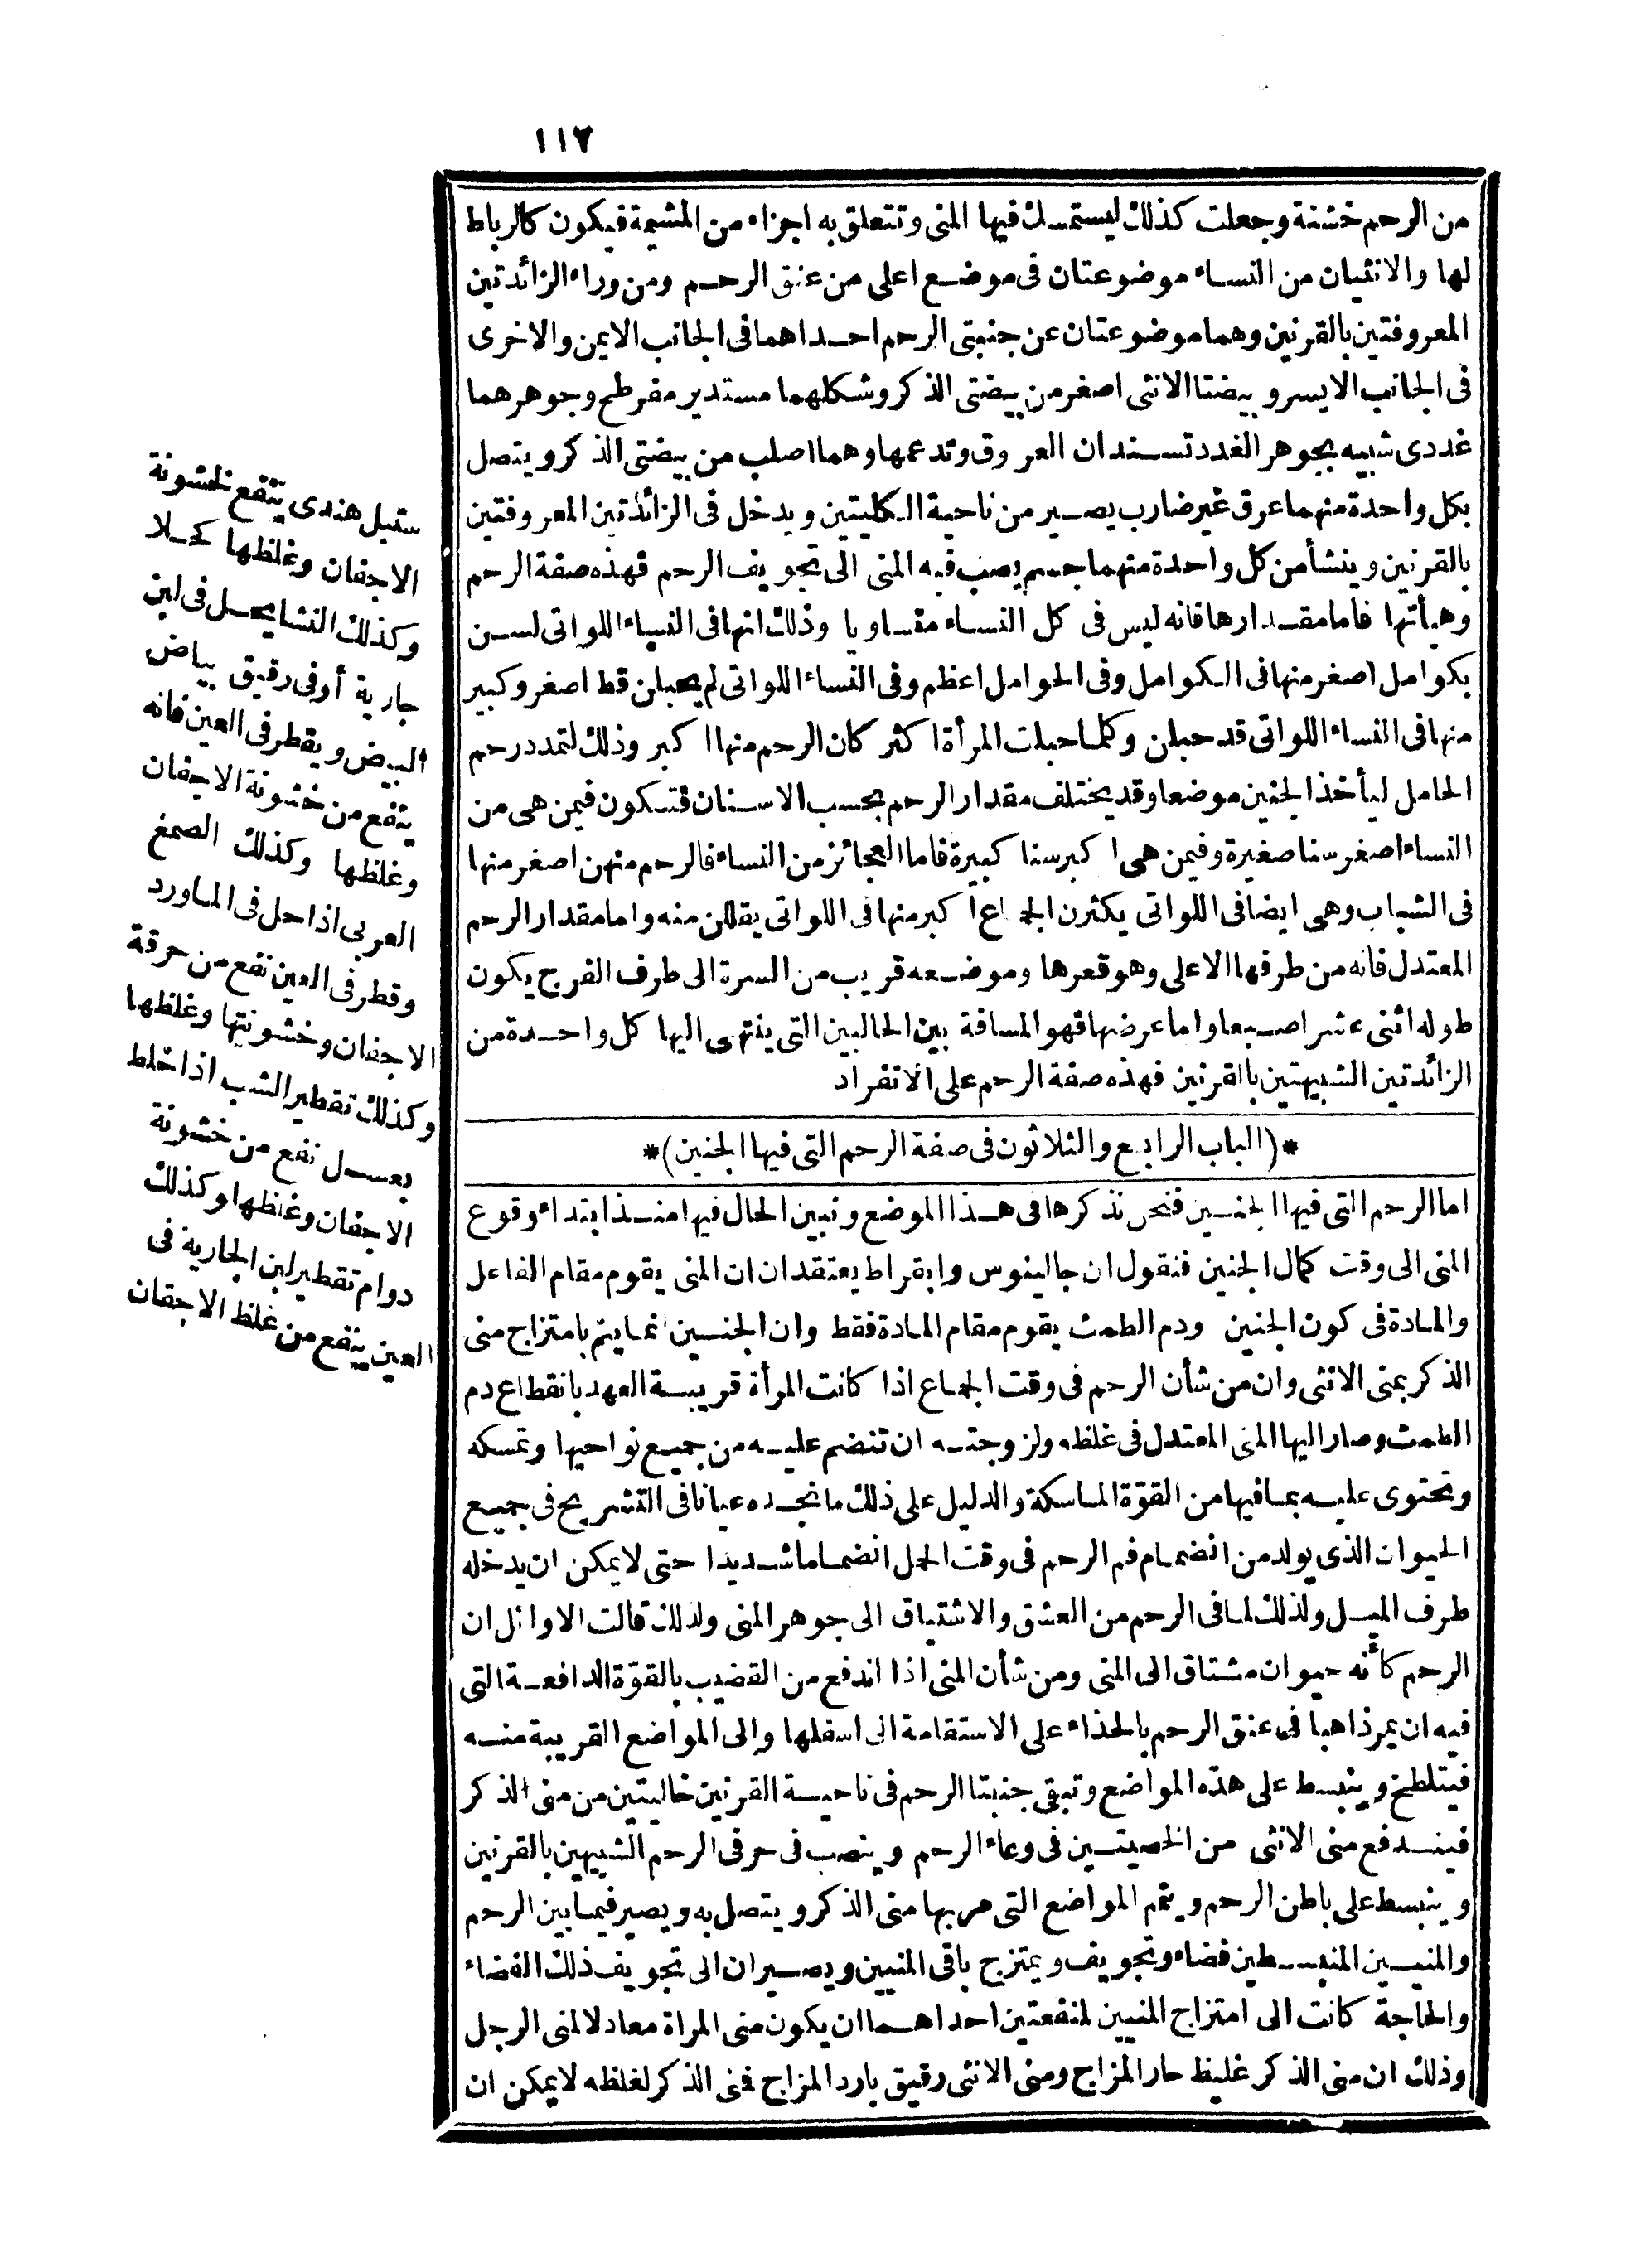 ١١٧
من الرحم خشنة وجعلت كذلك ليستمسك فيها المنى وتتعلق به اجزاء من المشيمة فيكون كالرباط
لها والانثيان من النساء موضوعتان فى موضع اعلى من عنق الرحم ومن وراء الزائدتين
المعروفتين بالقرنين وهما موضوعتان عن جنبتى الرحم احداهما فى الجانب الايمن والاخرى
فى الجانب الايسر وبيضتا الانثى اصغر من بيضتى الذكر وشكلهما مستدير مفرطح وجوهرهما
غددى شبيه بجوهر الغدد تسندان العروق وتدعمها وهما اصلب من بيضتى الذكر ويتصل
بكل واحدة منهما عرق غير ضارب يصير من ناحية الكليتين ويدخل فى الزائدتين المعروفتين
بالقرنين وينشأ من كل واحدة منهما جسم يصب فيه المنى الى تجويف الرحم فهذه صفة الرحم
وهيأتها فاما مقدارها فانه ليس فى كل النساء متساويا وذلك انها فى النساء اللواتى لسن
بكوامل اصغر منها فى الكوامل وفى الحوامل اعظم وفى النساء اللواتى لم يحبلن قط اصغر وكبير
منها فى النساء اللواتى قد حبلن وكلما حبلت المرأة اكثر كان الرحم منها اكبر وذلك لتمدد رحم
الحامل ليأخذ الجنين موضعا وقد يختلف مقدار الرحم بحسب الاسنان فتكون فيمن هى من
النساء اصغر سنا صغيرة وفيمن هى اكبر سنا كبيرة فاما العجائز من النساء فالرحم منهن اصغر منها
فى الشباب وهى ايضا فى اللواتى يكثرن الجماع اكبر منها فى اللواتى يقللن منه واما مقدار الرحم
المعتدل فانه من طرفها الاعلى وهو قعرها وموضعه قريب من السرة الى طرف الفرج يكون
طوله اثنى عشر اصبعا واما عرضها فهو المسافة بين الحالبين التى ينتهى اليها كل واحدة من
الزائدتين الشبيهتين بالقرنين فهذه صفة الرحم على الانفراد
*(الباب الرابع والثلاثون فى صفة الرحم التى فيها الجنين)*
اما الرحم التى فيها الجنين فنحن نذكرها فى هذا الموضع ونبين الحال فيها منذ ابتداء وقوع
المنى الى وقت كمال الجنين فنقول ان جالينوس وابقراط يعتقدان ان المنى يقوم مقام الفاعل
والمادة فى كون الجنين ودم الطمث يقوم مقام المادة فقط وان الجنين انما يتم بامتزاج منى
الذكر بمنى الانثى وان من شأن الرحم فى وقت الجماع اذا كانت المرأة قريبة العهد بانقطاع دم
الطمث وصار اليها المنى المعتدل فى غلظه ولزوجته ان تنضم عليه من جميع نواحيها وتمسكه
وتحتوى عليه بما فيها من القوّة الماسكة والدليل على ذلك ما نجده عيانا فى التشريح فى جميع
الحيوان الذى يولد من انضمام فم الرحم فى وقت الحمل انضماما شديدا حتى لا يمكن ان يدخله
طرف الميل ولذلك لما فى الرحم من العشق والاشتياق الى جوهر المنى ولذلك قالت الاوائل ان
الرحم كأنه حيوان مشتاق الى المنى ومن شأن المنى اذا اندفع من القضيب بالقوّة الدافعة التى
فيه ان يمر ذاهبا فى عنق الرحم بالحذاء على الاستقامة الى اسفلها والى المواضع القريبة منه
فيتلطخ وينبسط على هذه المواضع وتبقى جنبتا الرحم فى ناحية القرنين خاليتين من منى الذكر
فيندفع منى الانثى من الخصيتين فى وعاء الرحم وينصب فى حرفى الرحم الشبيهين بالقرنين
وينبسط على باطن الرحم ويتمم المواضع التى مر بها منى الذكر ويتصل به ويصير فيما بين الرحم
والمنيين المنبسطين فضاء وتجويف ويمتزج باقى المنيين ويصيران الى تجويف ذلك الفضاء
والحاجة كانت الى امتزاج المنيين لمنفعتين احداهما ان يكون منى المراة معادلا لمنى الرجل
وذلك ان منى الذكر غليظ حار المزاج ومنى الانثى رقيق بارد المزاج فمنى الذكر لغلظه لا يمكن ان
سنبل هندى ينفع لخشونة
الاجفان وغلظها كحلا
وكذلك النشا يحل فى لبن
جارية أو فى رقيق بياض
البيض ويقطر فى العين فانه
ينفع من خشونة الاجفان
وغلظها وكذلك الصمغ
العربى اذا حل فى الماورد
وقطر فى العين نفع من حرقة
الاجفان وخشونتها وغلظها
وكذلك تقطير الشب اذا خلط
بعسل نفع من خشونة
الاجفان وغلظها وكذلك
دوام تقطير لبن الجارية فى
العين ينفع من غلظ الاجفان